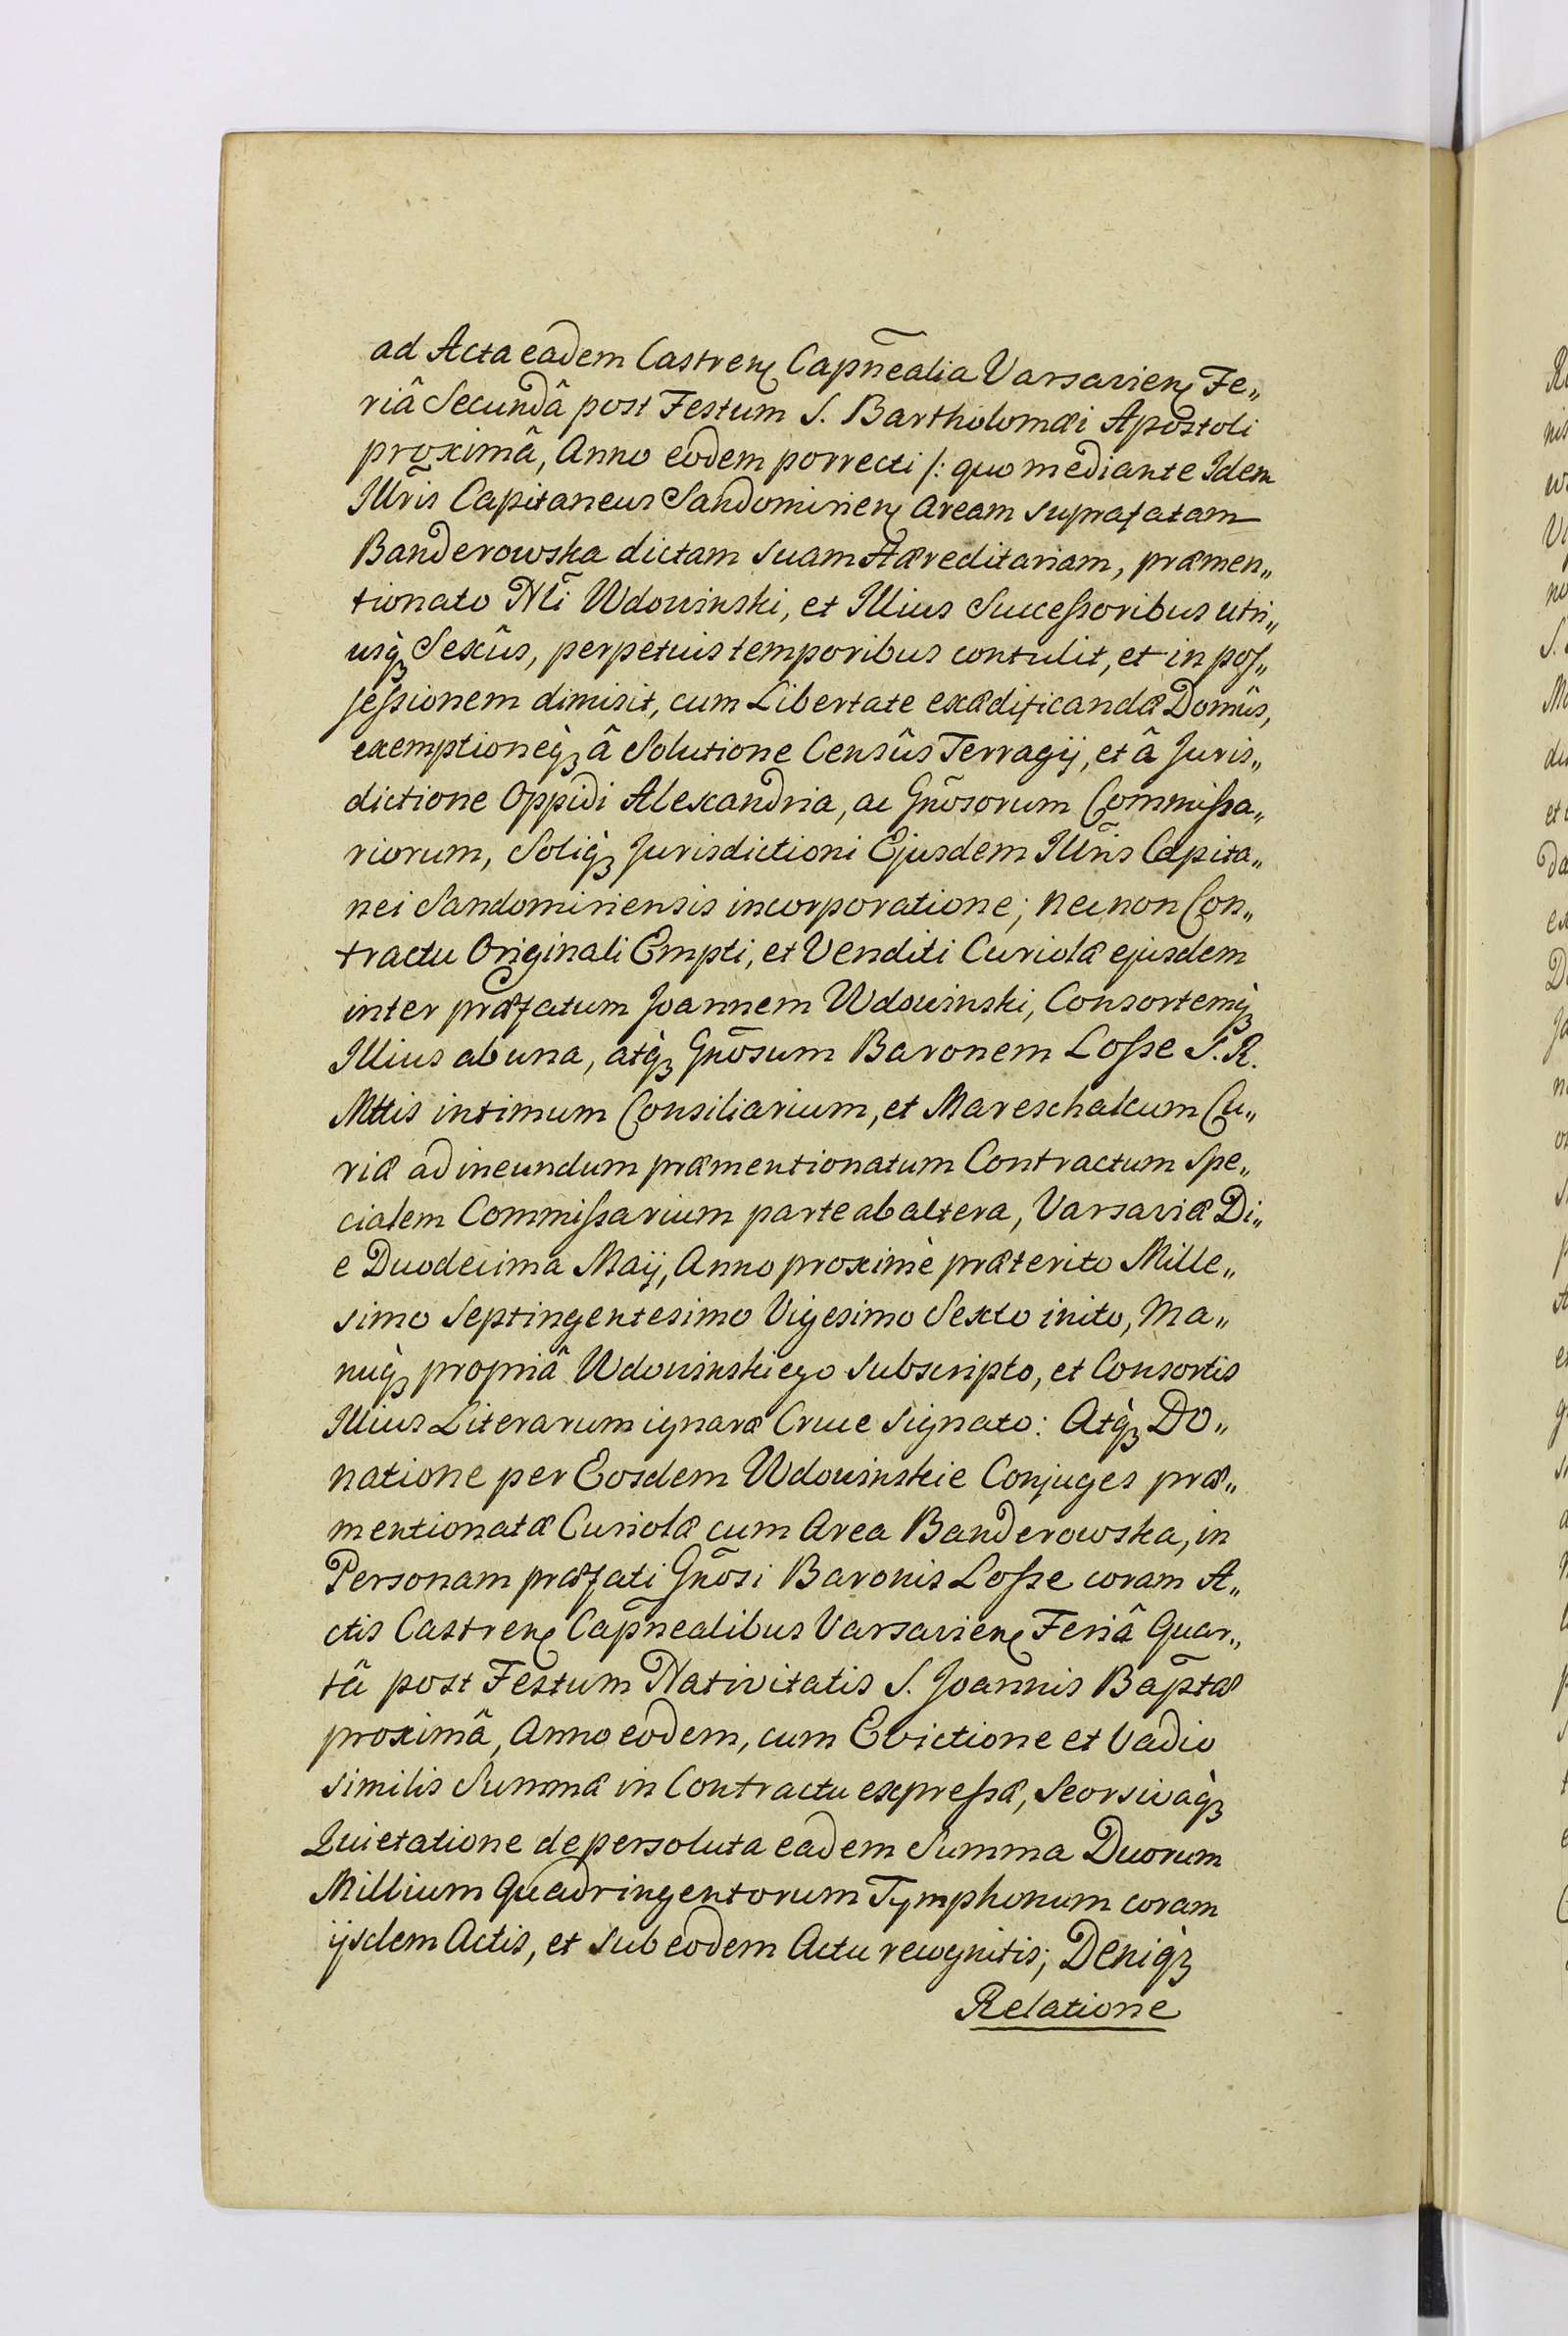 ad Acta eadem Castren̨ Capn̄ealia Varsavien̨ Fe„
riâ Secundâ post Festum S. Bartholomæi Apostoli
proximâ, Anno eodem porrecti /: quo mediante Idem
Illr̄is Capitaneus Sandomirien̨ Aream suprafatam
Banderowska dictam suam Hæreditariam, præmen„
tionato Nlī Wdowinski, et Illius Successoribus utri„
usq̀ꝫ Sexûs, perpetuis temporibus contulit, et in pos„
sessionem dimisit, cum Libertate exædificandæ Domûs,
exemptioneq̀ꝫ â Solutione Censûs Terragij, et â Juris„
dictione Oppidi Alexandria, ac Gnōsorum Commissa„
riorum, Soliq̀ꝫ Jurisdictioni Ejusdem Illr̄is Capita„
nei Sandomiriensis incorporatione; necnon Con„
tractu Originali Empti, et Venditi Curiolæ ejusdem
inter præfatum Joannem Wdowinski, Consortemq̀ꝫ
Illius ab una, atq̀ꝫ Gnōsum Baronem Losse S. R.
Mttis intimum Consiliarium, et Mareschalcum Cu„
riæ ad ineundum præmentionatum Contractum Spe„
cialem Commissarium parte ab altera, Varsaviæ Di„
e Duodecima Maij, Anno proximè præterito Mille„
simo Septingentesimo Vigesimo Sexto inito, Ma„
nuq̀ꝫ propriâ Wdowinskiego subscripto, et Consortis
Illius Literarum ignaræ Cruce signato: Atq̀ꝫ Do„
natione per Eosdem Wdowinskie Conjuges præ„
mentionatæ Curiolæ cum Area Banderowska, in
Personam præfati Gnōsi Baronis Losse coram A„
ctis Castren̨ Capn̄ealibus Varsavien̨ Feriâ Quar„
tâ post Festum Nativitatis S. Joannis Bap̄tæ
proximâ, Anno eodem, cum Evictione et Vadio
similis Summæ in Contractu expressæ, Seorsivaq̀ꝫ
Quietatione de persoluta eadem Summa Duorum
Millium Quadringentorum Tymphonum coram
ijsdem Actis, et sub eodem Actu recognitis; Deniq̀ꝫ
Relatione